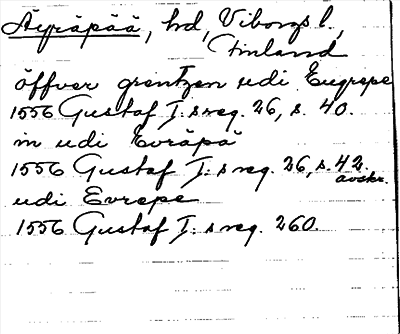 Äyräpää, hd, Viborgs l.,
Finland
öffver grentzen udi Eugrepe
1556 Gustaf I:s reg. 26, s. 40.
in udi Evräpä
1556 Gustaf I:s reg. 26, s. 42.
avskr.
udi Evrepe
1556 Gustaf I:s reg. 260.